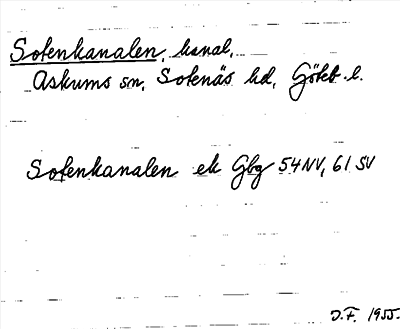 Sotenkanalen, kanal,
Askums sn, Sotenäs hd, Göteb. l.
Sotenkanalen ek Gbg 54NV, 61 SV
D.F. 1955.